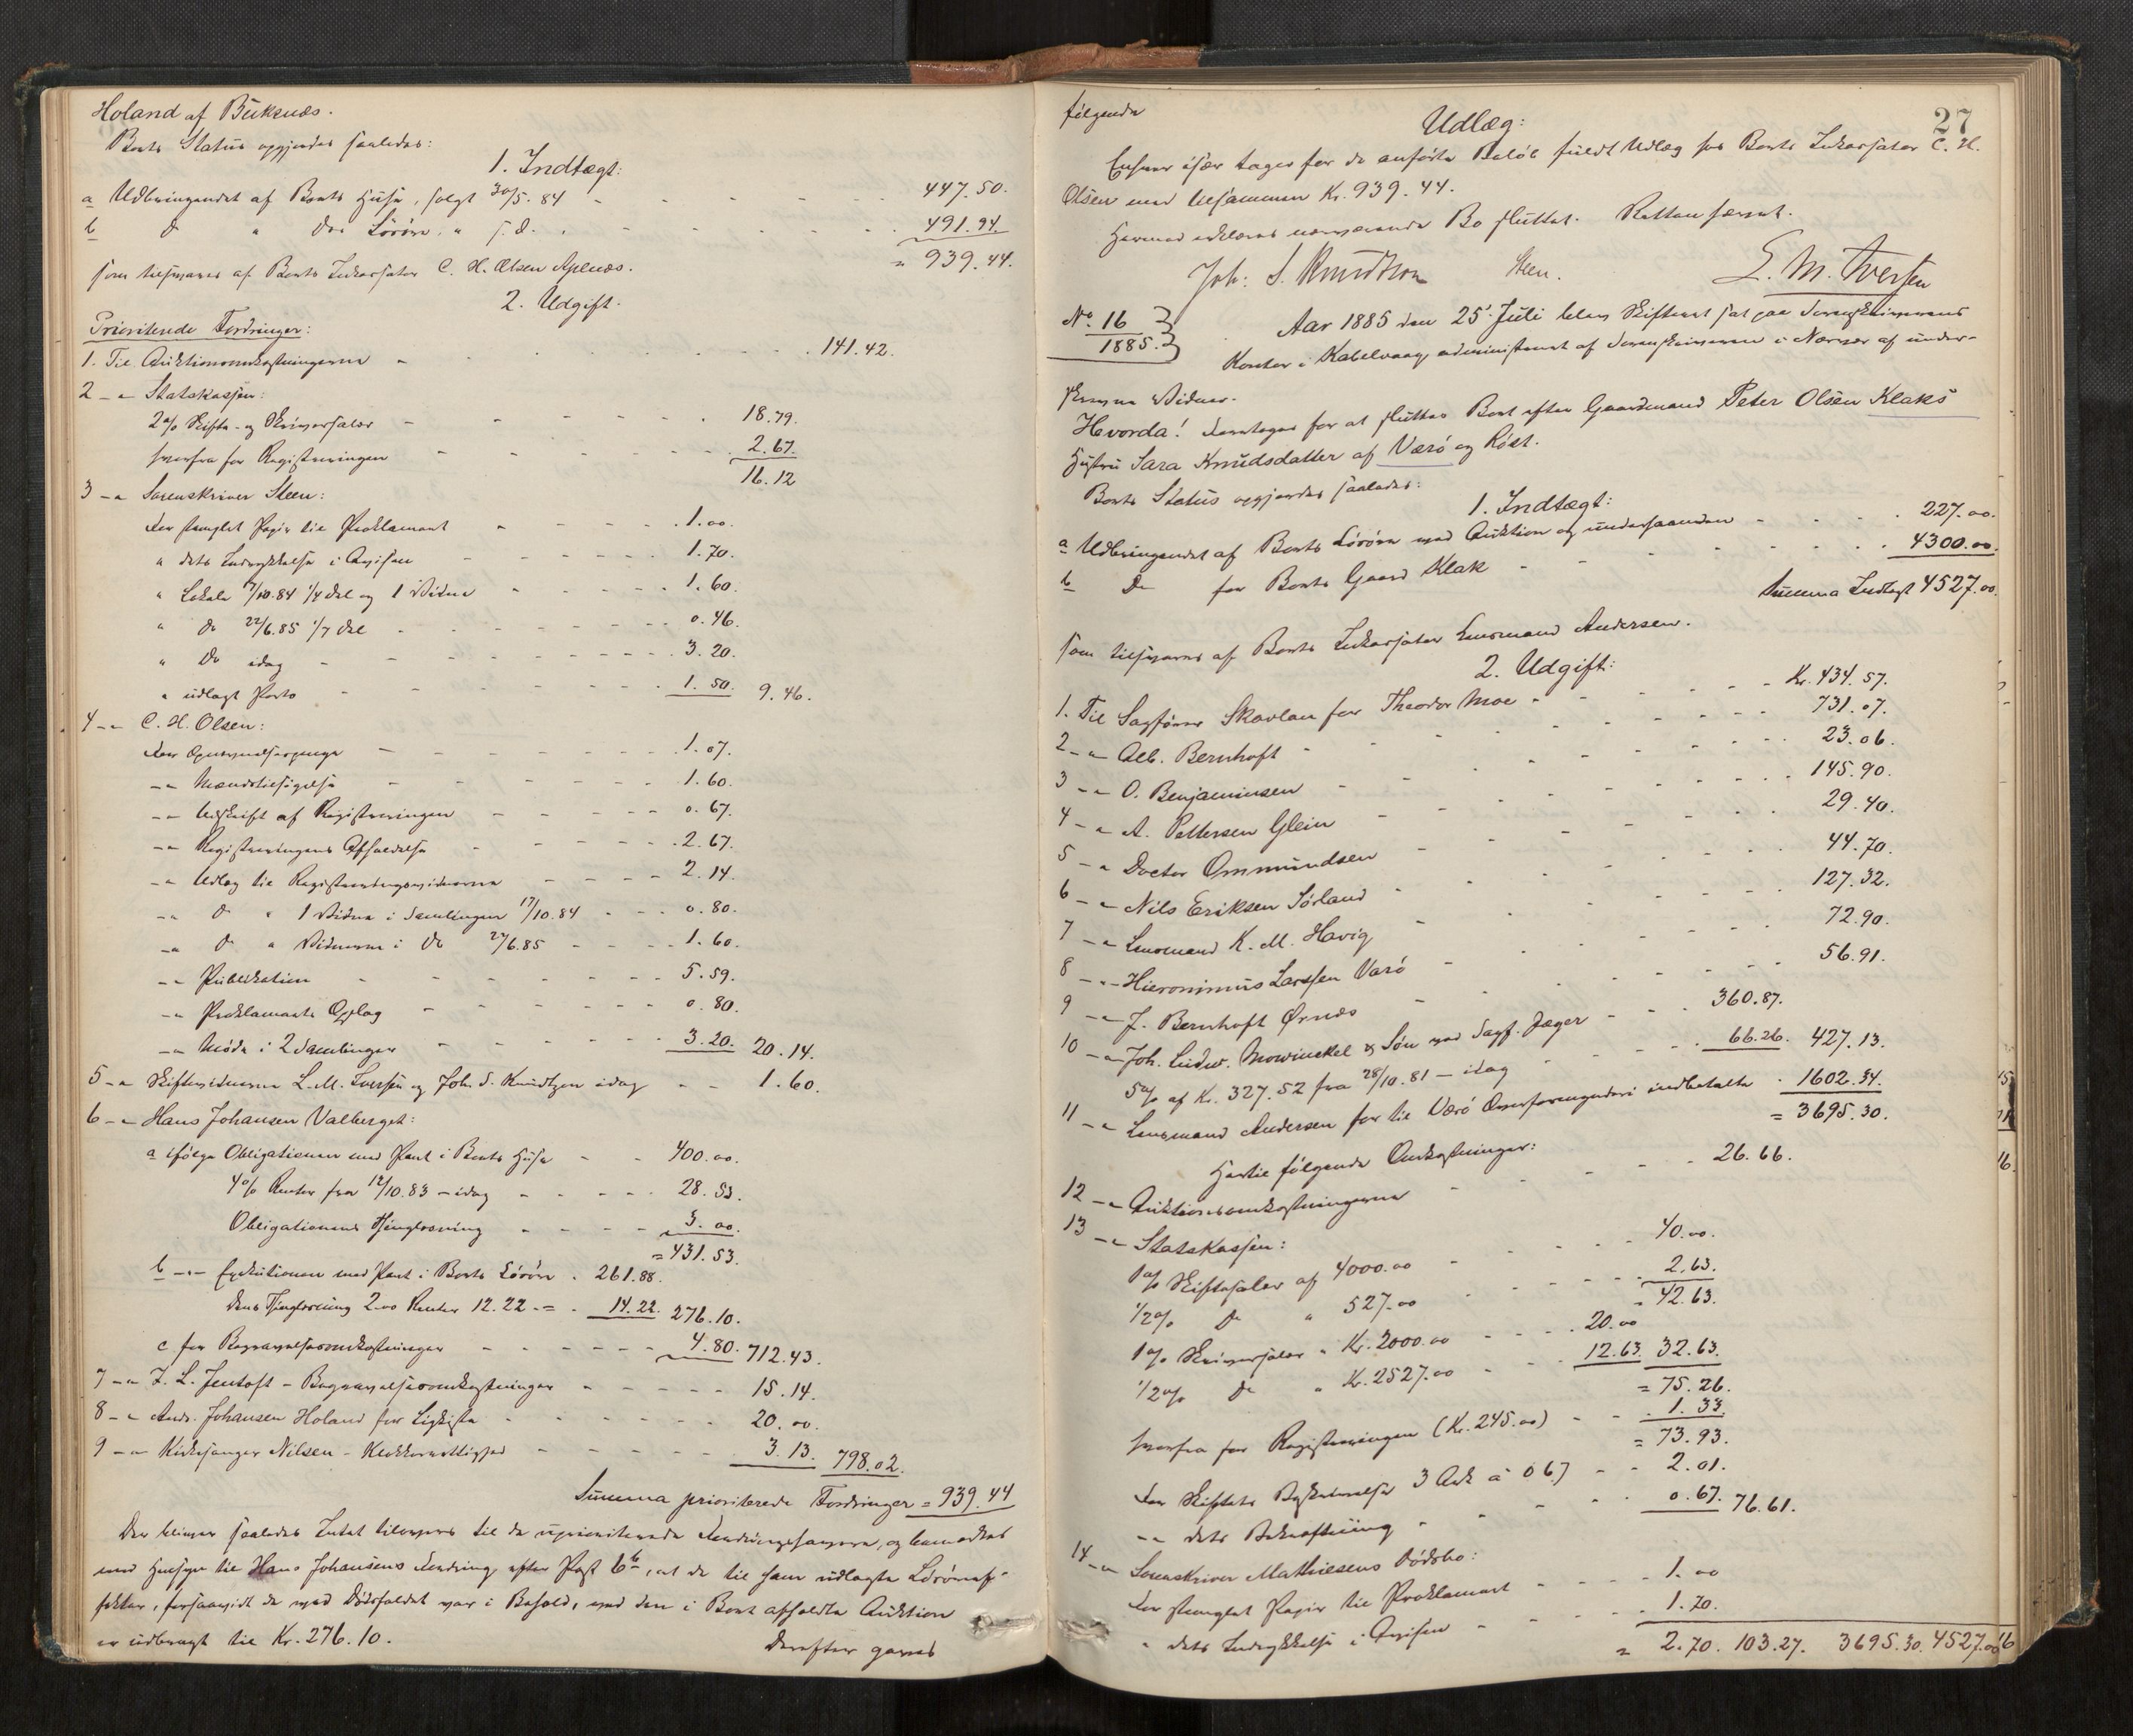 Holand af Buksnæs.
Boets Status opgjordes saaledes:
1. Indtægt:
a Udbringendet af Boets Huse, solgt 30/5. 84 - - - - 447.50.
b Do " Dos Lösöre, " s. d. - - - - 491.94.
= 939.44.
som tilsvares af Boets Inkassator C. H. Olsen Apenæs.
2. Udgift.
Prioriterede Fordringer:
1. Til Auktionsomkostningerne - - - - 141.42.
2 - " Statskassen:
2 % Skifte- og Skriversalær - - - - 18.79.
herfra for Registreringen - - - - 2.67.
16.12
3 - " Sorenskriver Steen:
For stemplet Papir til Proklamaet - - - 1.00.
" dets Indrykkelse i Avisen - - - 1.70.
" Lokale 17/10.84 1/4 del og 1 Vidne - - - 1.60.
" do 22/6.85 1/7 del - - - 0.46.
" Do idag - - - 3.20.
" udlagt Porto - - - 1.50. 9.46.
4 - " C. H. Olsen:
For Opnævnelsespenge - - - 1.07.
- " Mændstilsigelse - - - 1.60.
- " Udskrift af Registreringen - - - 0.67.
- " Registreringens Afholdelse - - - 2.67.
- " Udlæg til Registreringsvidnerne - - - 2.14.
- " do " 1 Vidne i Samlingen 17/10.84 - - - 0.80.
- " do " Vidnerne i do 22/6.85 - - - 1.60.
- " Publikation - - - 5.59.
- " Proklamaets Opslag - - - 0.80.
- " Möde i 2 Samlinger - - - 3.20. 20.14.
5 - " Skiftevidnerne L. M. Iversen og Joh. S. Knudtzon idag - - 1.60.
6 - " Hans Johansen Valberget:
a ifölge Obligationen med Pant i Boets Huse - - 400.00.
4 % Renter fra 12/10.83 - idag - - - 28.53.
Obligationens Thinglæsning - - - 3.00.
= 431.53.
b - " - Exekutionen med Pant i Boets Lösöre . 261.88.
dens Thinglæsning 2.00 Renter 12.22 - = . 14.22. 276.10.
c for Begravelsesomkostninger - - - 4.80. 712.43.
7 - " J. L. Jentoft - Begravelsesomkostninger - - - 15.14.
8 - " Andr. Johansen Holand for Ligkiste - - - 20.00.
9 - " Kirkesanger Nilsen - Klokkerrettighed - - - 3.13. 798.02.
Summa prioriterede Fordringer = 939.44
Der bliver saaledes Intet tilovers til de uprioriterede Fordringshavere, og bemærkes
med Hensyn til Hans Johansens Fordring, efter Post 6 b, at de til ham udlagte Lösöreef-
fekter, forsaavidt de ved Dödsfaldet var i Behold, ved den i Boet afholdte Auktion
er udbragt til Kr. 276.10.
Derefter gjøres
27
følgende
Udlæg:
Enhver især tages for de anförte Belöb fuldt Udlæg hos Boets Inkassator C. H.
Olsen med tilsammen Kr. 939.44.
Hermed erklæres nærværende Bo sluttet. Retten hævet.
Joh: S. Knudtzon Steen. L. M. Iversen
No. 16 / 1885. Aar 1885 den 25. Juli blev Skifteret sat paa Sorenskriverens
Kontor i Kabelvaag, administreret af Sorenskriveren i Nærvær af under-
skrevne Vidner.
Hvorda! Foretoges for at sluttes Boet efter Gaardmand Peter Olsen Klaks
Hustru Sara Knudsdatter af Værö og Röst.
Boets Status opgjordes saaledes:
1. Indtægt:
a Udbringendet af Boets Lösöre ved Auktion og underhaanden - - 227.00.
b Do for Boets Gaard Klak - - - - 4300.00.
Summa Indtægt 4527.00.
som tilsvares af Boets Inkassator Lensmand Andersen.
2. Udgift:
1. Til Sagförer Skavlan for Theodor Moe - - - Kr. 434.57.
2 - " Alb. Bernhoft - - - 731.07.
3 - " O. Benjaminsen - - - 23.06.
4 - " A. Pettersen Glein - - - 145.90.
5 - " Doctor Ommundsen - - - 29.40.
6 - " Nils Eriksen Sörland - - - 44.70.
7 - " Lensmand K. M. Havig - - - 127.32.
8 - " - Hieronimus Larssen Værö - - - 72.90.
9 - " J. Bernhoft Ørnæs - - - 56.91.
10 - " Joh. Ludw. Mowinckel & Sön ved Sagf. Jæger - - 360.87.
5 % af Kr. 327.52 fra 28/10.81 - idag - - - 66.26. 427.13.
11 - " Lensmand Andersen for til Værö Overformynderi indbetalte . 1602.34.
= 3695.30.
Hertil følgende Omkostninger:
12 - " Auktionsomkostningerne - - - 26.66.
13 - " Statskassen:
1 % Skiftesalær af 4000.00 - - - 40.00.
1/2 % Do " 527.00 - - - 2.63.
= 42.63.
1 % Skriversalær " Kr. 2000.00 - - - 20.00
1/2 % Do " Kr. 2527.00 - - - 12.63. 32.63.
= 75.26.
herfra for Registreringen (Kr. 245.00) - - 1.33.
= 73.93.
For Skiftets Beskrivelse 3 Ark à 067 - - 2.01.
- " dets Bekræftning - - - 0.67. 76.61.
14 - " Sorenskriver Mathiesens Dödsbo:
For stemplet Papir til Proklamaet - - - 1.00
" dets Indrykkelse i Avisen - - - 1.70.
= 2.70. 103.27. 3695.30. 4527.00